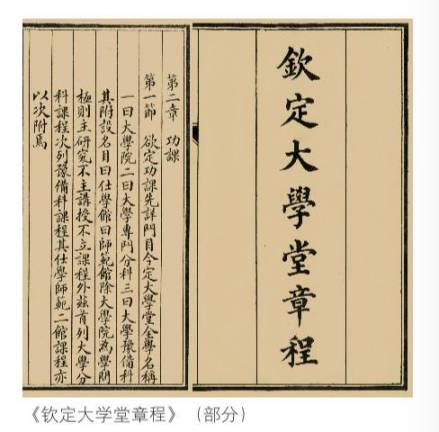 欽定大學堂章程
第二章 功課
第一節 欲定功課先詳門目今定大學堂全學名稱
一曰大學院二曰大學專門分科三曰大學豫備科
其附設名目曰仕學館曰師範館除大學院為學問
極則主研究不主講授不立課程外茲首列大學分
科課程次列豫備科課程其仕學師範二館課程亦
以次附焉
《钦定大学堂章程》（部分）